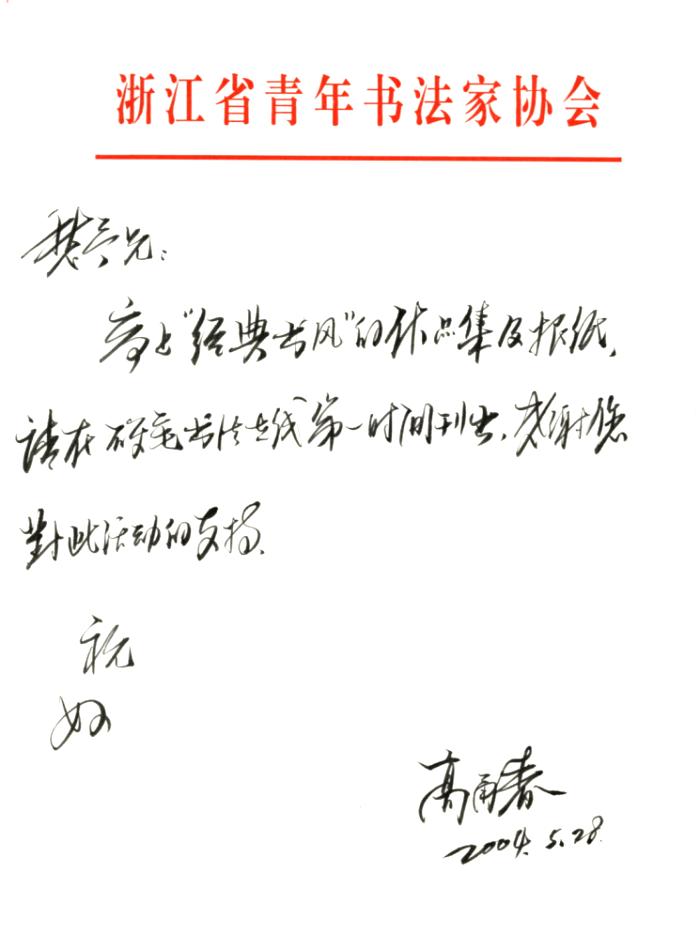 浙江省青年书法家协会
兄:
寄上“经典书风”的作品集及报纸,
请在硬笔书法在线第一时间刊出,感谢您
對此活动的支持.
祝
好
高甬春
2004.5.28